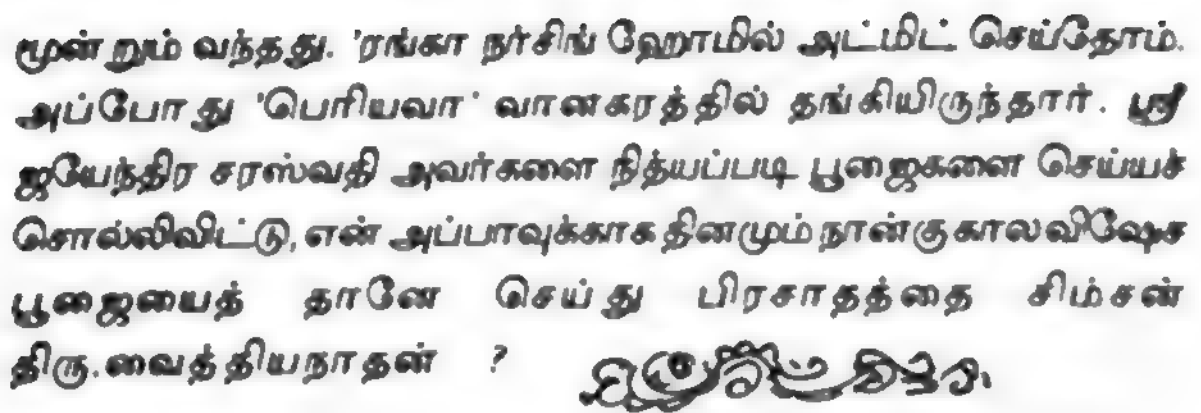 மூன்றும் வந்தது. 'ரங்கா நர்சிங் ஹோமில் அட்மிட் செய்தோம்.
அப்போது 'பெரியவா' வானகரத்தில் தங்கியிருந்தார். ஸ்ரீ
ஜயேந்திர சரஸ்வதி அவர்களை நித்யப்படி பூஜைகளை செய்யச்
சொல்லிவிட்டு, என் அப்பாவுக்காக தினமும் நான்கு கால விஷேச
பூஜையைத் தானே செய்து பிரசாதத்தை சிம்சன்
திரு.வைத்தியநாதன் ?